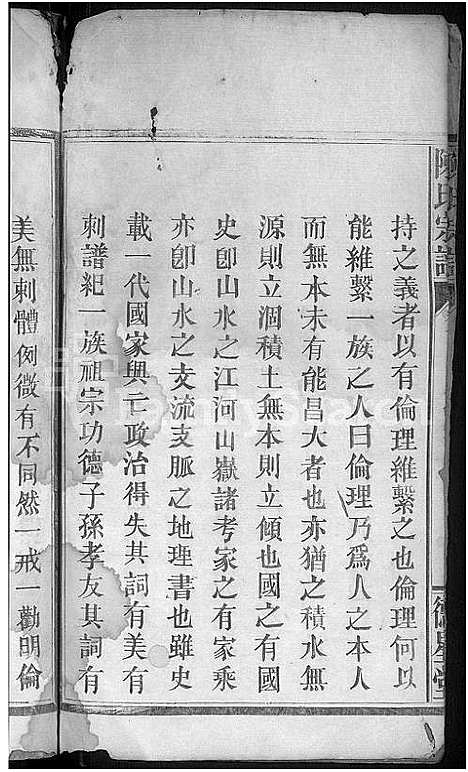 陳氏宗譜
德星堂
持之義者以有倫理維繫之也倫理何以
能維繫一族之人曰倫理乃爲人之本人
而無本未有能昌大者也亦猶之積水無
源則立涸積土無本則立傾也國之有國
史卽山水之江河山嶽諸考家之有家乘
亦卽山水之支流支脈之地理書也雖史
載一代國家興亡政治得失其詞有美有
刺譜紀一族祖宗功德子孫孝友其詞有
美無刺體例微有不同然一戒一勸明倫